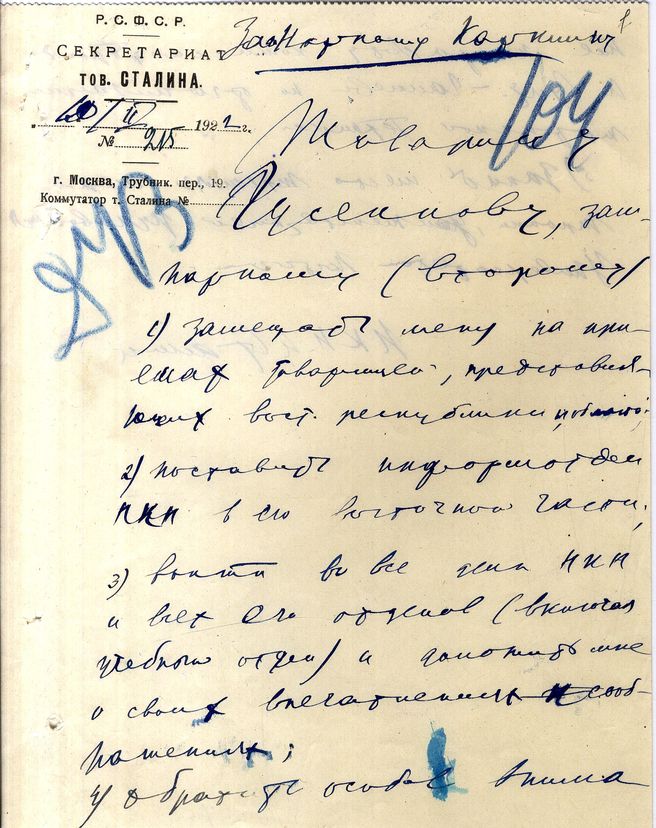 Р. С. Ф. С. Р.
СЕКРЕТАРИАТ
тов. СТАЛИНА.
20/II 1922 г.
№ 215
г. Москва, Трубник. пер., 19.
Коммутатор т. Сталина №
Товарищу
Гусейнову, зам-
наркому (второму)
1) замещать меня на при-
емах товарищей, представля-
ющих вост. республики
2) поставить информотдел
НКН в его восточной части;
3) войти во все дела НКН
и всех его отделов (включая
учебный отдел) и доложить мне
о своих впечатлениях и сооб-
ражениях;
4) обратить особое внима